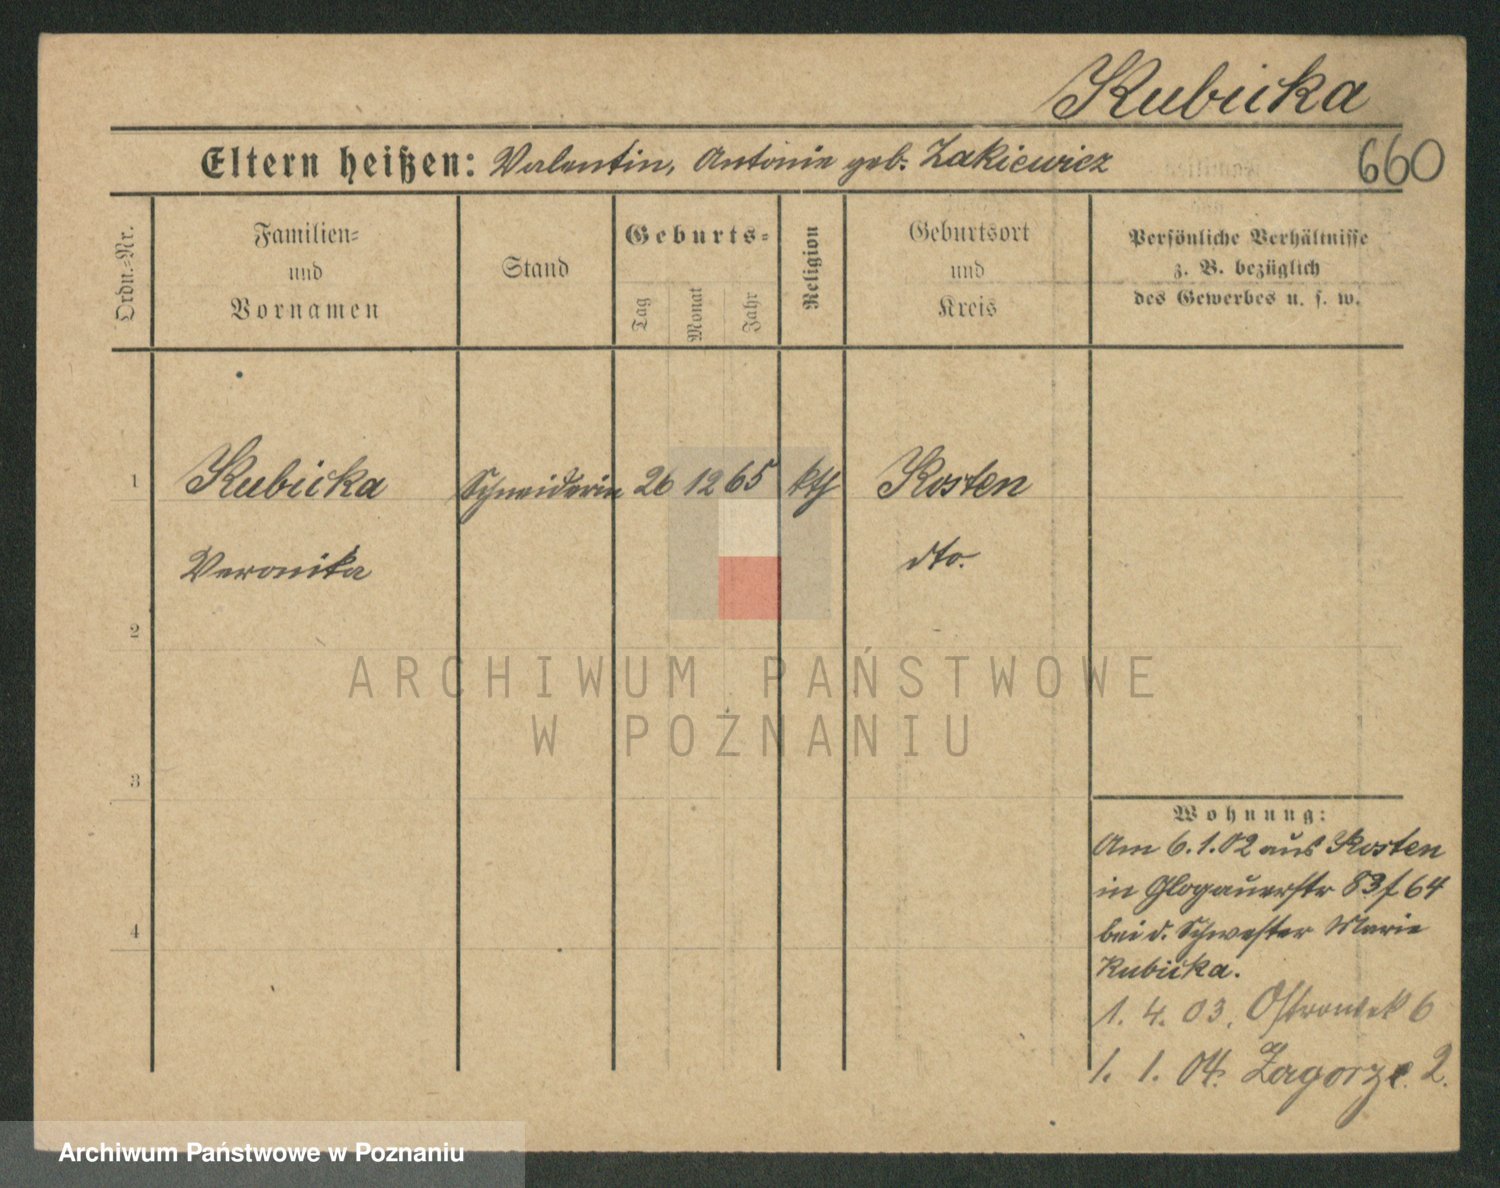 Kubicka
Eltern heißen: Valentin, Antonie geb. Zakiewicz 660
Ordn.-Nr.
Familien-
und
Vornamen
Stand
Geburts-
Tag
Monat
Jahr
Religion
Geburtsort
und
Kreis
Persönliche Verhältnisse
z. B. bezüglich
des Gewerbes u. s. w.
1 Kubicka Schneiderin 26 12 65 kth Kosten
Veronika dto.
2
ARCHIWUM PAŃSTWOWE
W POZNANIU
3
Wohnung:
Am 6.1.02 aus Kosten
in Glogauerstr 83 f 64
bei d. Schwester Marie
4
Kubicka.
1. 4. 03. Ostrowek 6
1. 1. 04. Zagorze 2.
Archiwum Państwowe w Poznaniu